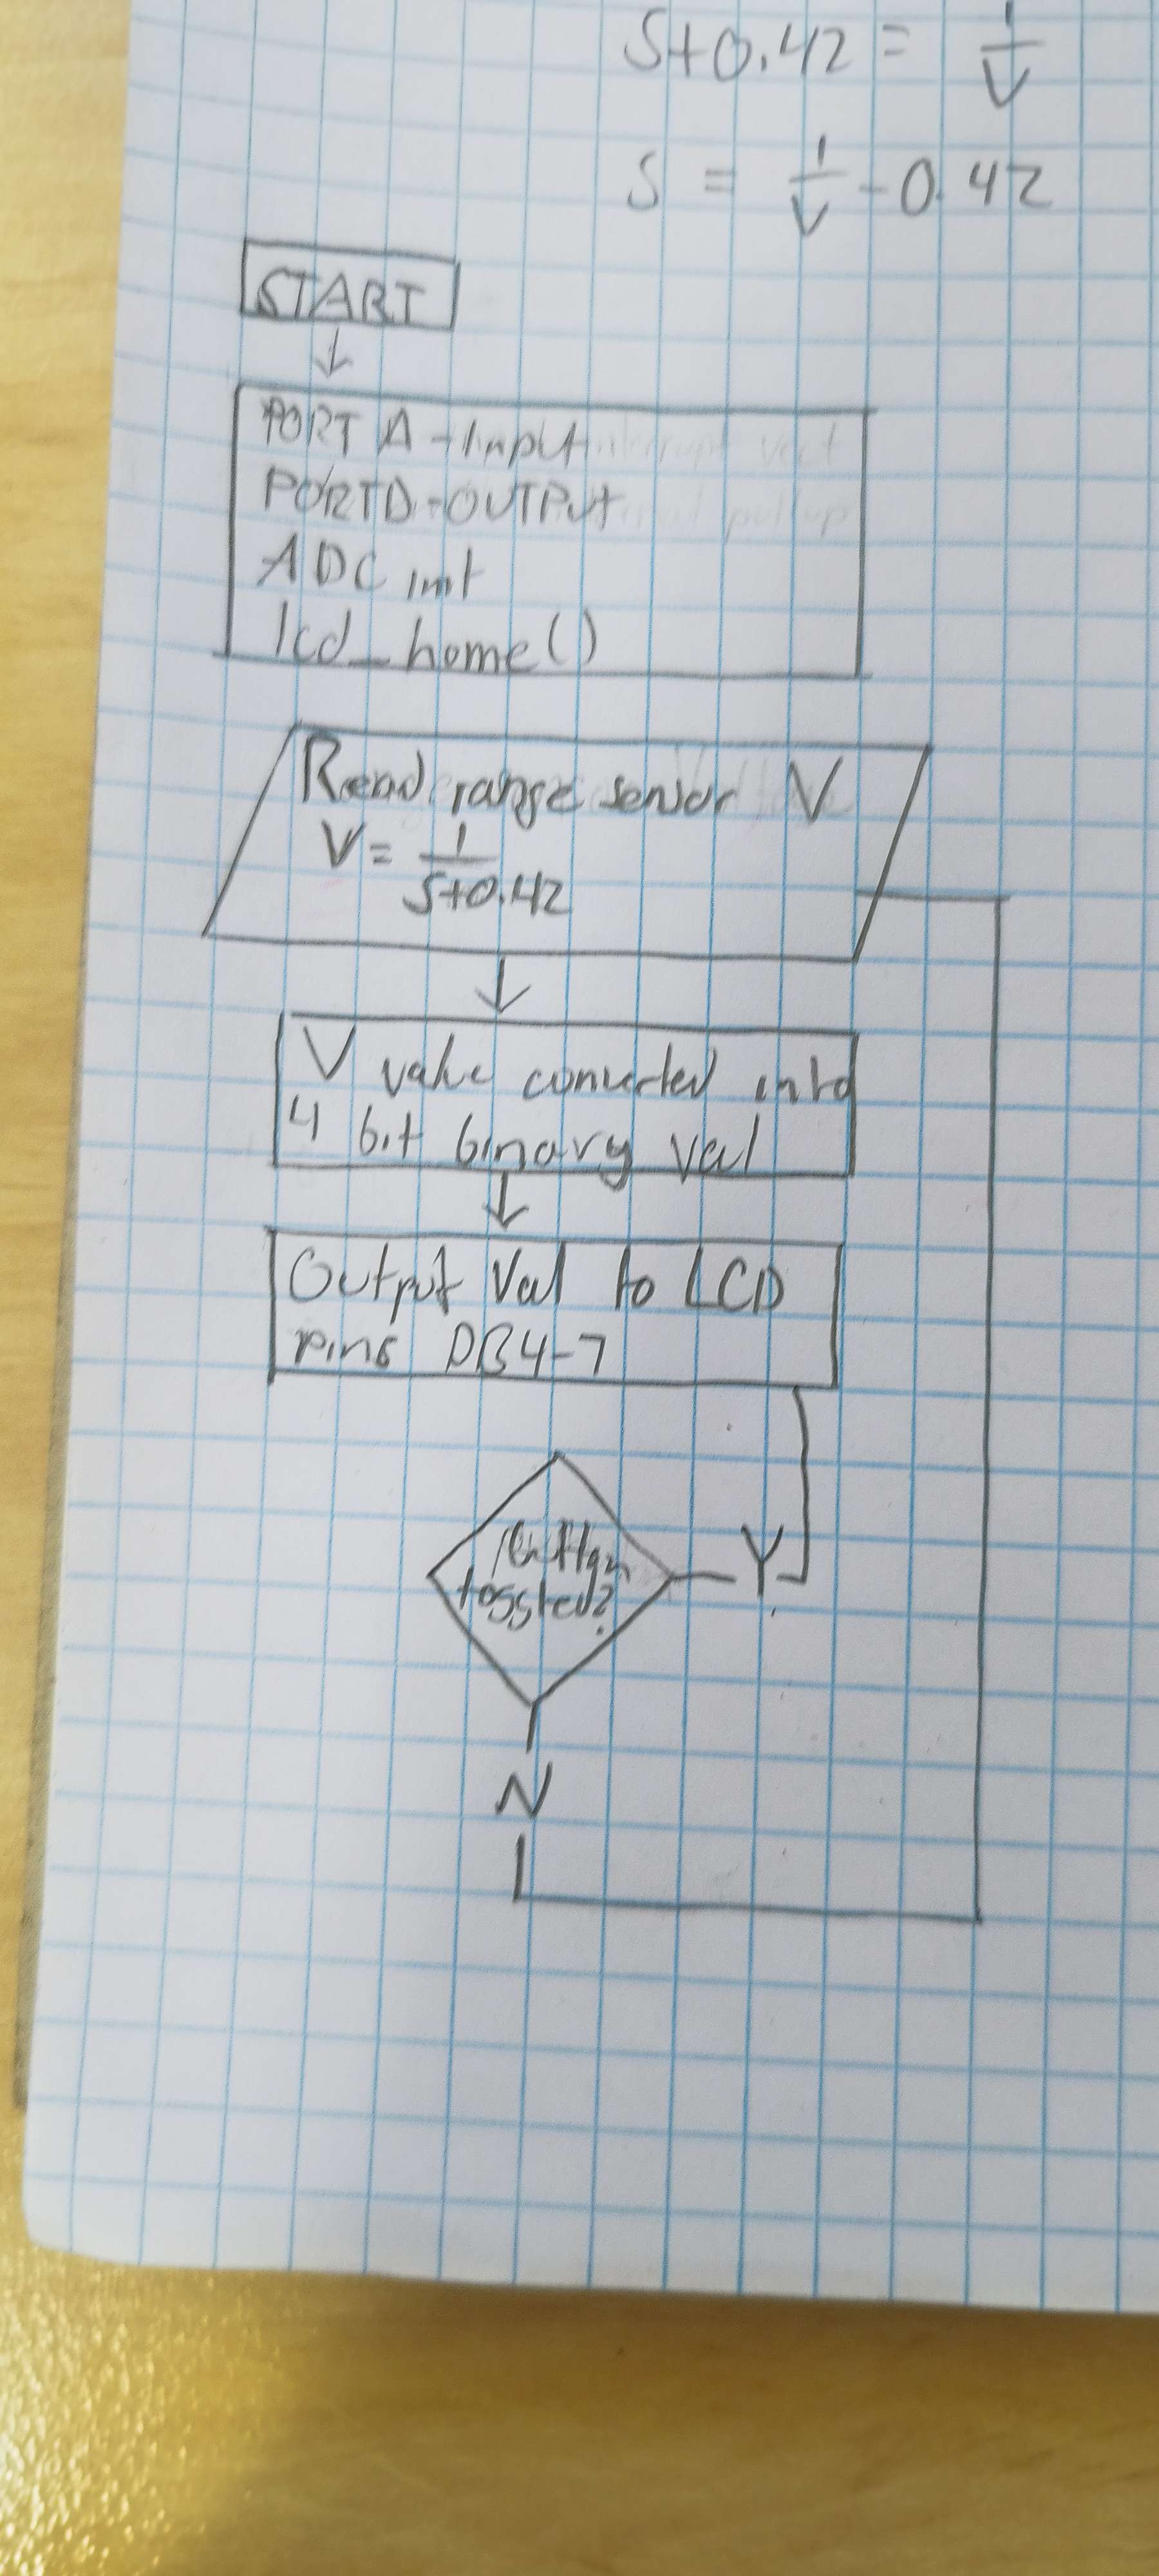 S+0.42 = 1/V
S = 1/V - 0.42
START
PORT A - Input
PORTD - OUTPUT
ADC init
lcd_home()
Read range sensor V
V = 1/S+0.42
V value converted into
4 bit binary val
Output Val to LCD
pins DB4-7
toggled?
Y
N